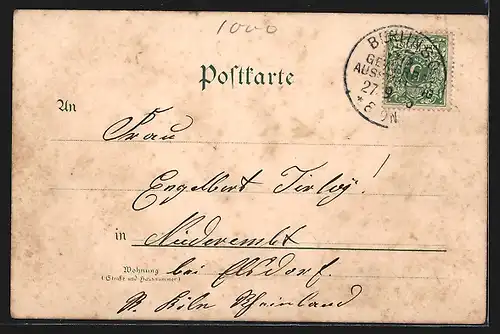 1000
Postkarte
BERLIN
27 9
8-9N
An
Frau
Engelbert
in Niederembt
Wohnung
(Straße und Hausnummer)
bei Elsdorf.
Köln Rheinland